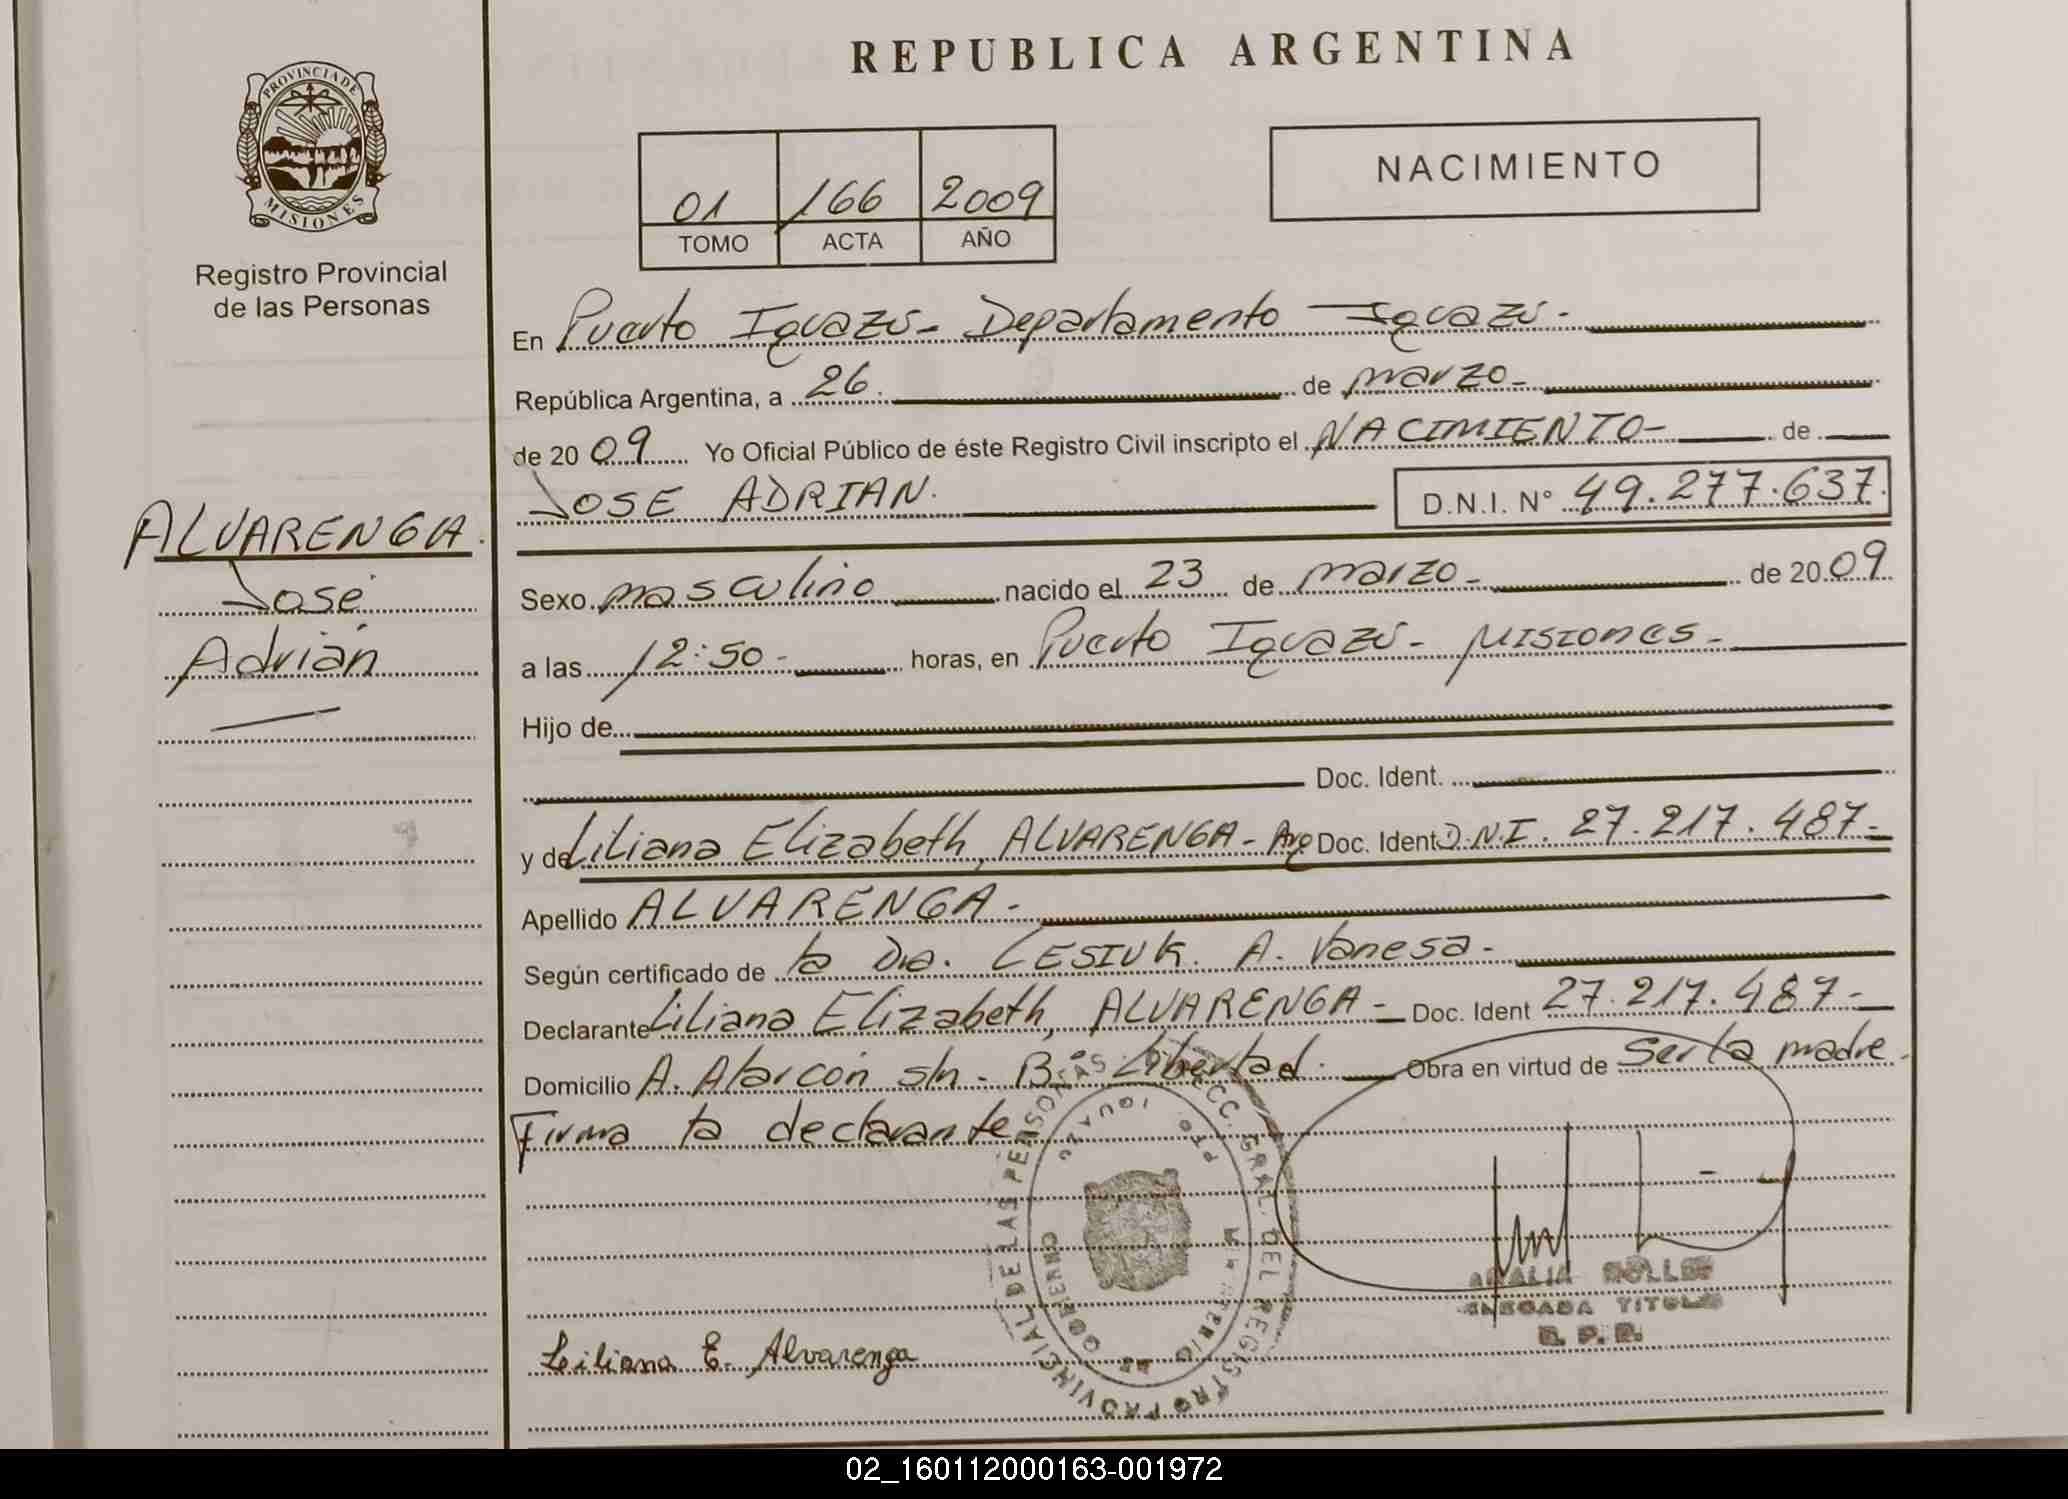 REPUBLICA ARGENTINA
PROVINCIA DE
MISIONES
Registro Provincial
de las Personas
01 166 2009
TOMO ACTA AÑO
NACIMIENTO
En Puerto Iguazú - Departamento Iguazú -
República Argentina, a 26 de marzo -
de 2009 Yo Oficial Público de éste Registro Civil inscripto el NACIMIENTO - de
JOSE ADRIAN. D.N.I. N° 49.277.637.
ALVARENGA.
José
Adrián
Sexo masculino nacido el 23 de marzo - de 2009
a las 12:50 - horas, en Puerto Iguazú - Misiones -
Hijo de
Doc. Ident.
y de Liliana Elizabeth, ALVARENGA - Arg Doc. Ident D.N.I. 27.217.487 -
Apellido ALVARENGA -
Según certificado de la Dra. LESIUK. A. Vanesa -
Declarante Liliana Elizabeth, ALVARENGA - Doc. Ident 27.217.487 -
Domicilio A. Alarcón s/n - B° Libertad. Obra en virtud de ser la madre.
Firma la declarante
Liliana E. Alvarenga
DE LAS PERSONAS
GRAL. DEL REGISTRO PROVINCIAL
PTO. IGUAZU
MINISTERIO DE GOBIERNO
TITULAR
R. P. P.
02_160112000163-001972